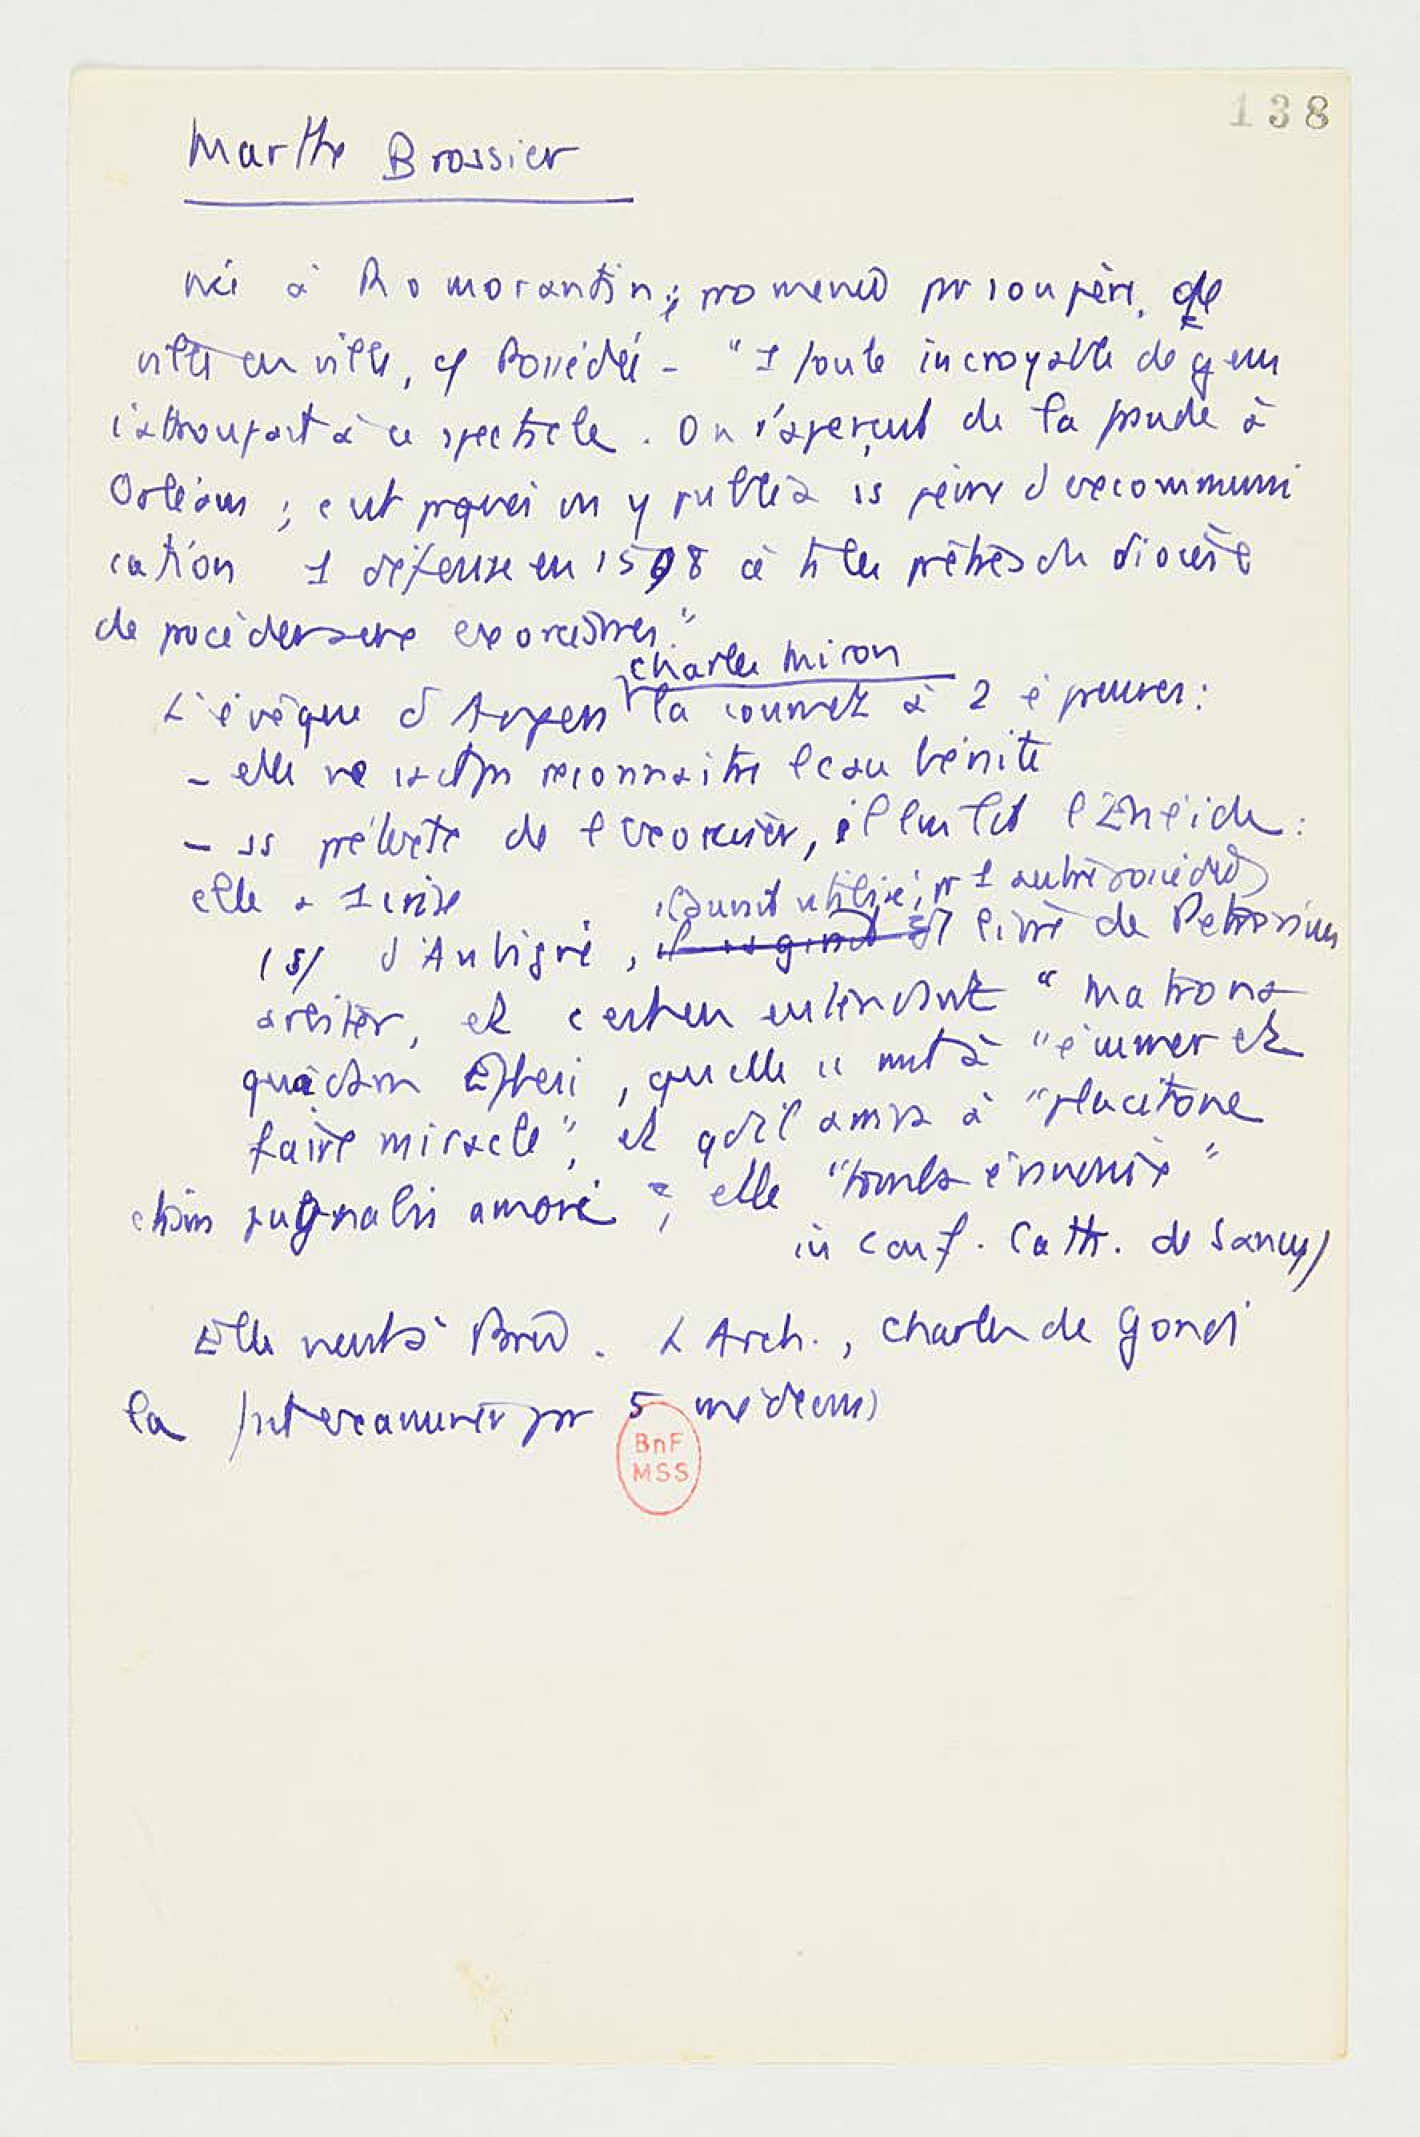 138
Marthe Brossier
née à Romorantin ; promenée pr son père, de
ville en ville, cf Possédée - "1 foule incroyable de gens
s'attroupait à ce spectacle. On s'aperçut de la fraude à
Orléans ; c'est pquoi on y publia ss peine d'excommuni
cation 1 défense en 1598 à ts les prêtres du diocèse
de procéder aux exorcismes."
Charles Miron
L'évêque d'Angers la soumet à 2 épreuves :
- elle ne sait pas reconnaitre l'eau bénite
- ss prétexte de l'exorciser, il lui lit l'Enéide :
elle a 1 crise
(s/ d'Aubigné, il s'agirait du livre de Petronius
il aurait utilisé, pr 1 autre possédée)
arbiter, et c'est en entendant "matrona
quadam Ephesi, qu'elle se mit à "écumer et
faire miracle", et qd il arriva à "placitone
etiam pugnabis amori", elle "tomba évanouie"
in Conf. Cath. de Sancy)
Elle vient à Paris. L'Arch., Charles de Gondi
la fait examiner par 5 médecins
BnF
MSS